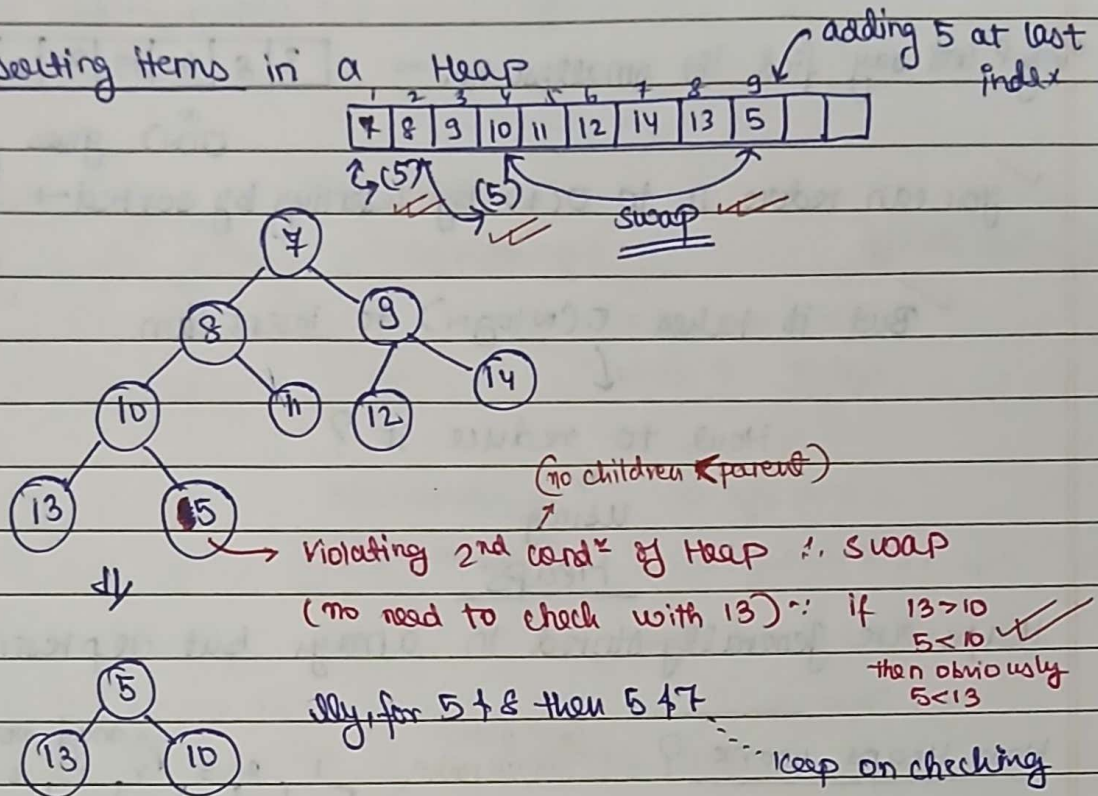 serting items in a Heap
adding 5 at last
index
1 2 3 4 5 6 7 8 9
7 8 9 10 11 12 14 13 5
(5) (5)
swap
7
8 9
10 11 12 14
13 5
(no children < parent)
violating 2nd condn of Heap ∴ swap
(no need to check with 13) ∵ if 13>10
5<10
then obviously
5<13
5
13 10
illy, for 5 & 8 then 5 & 7
keep on checking